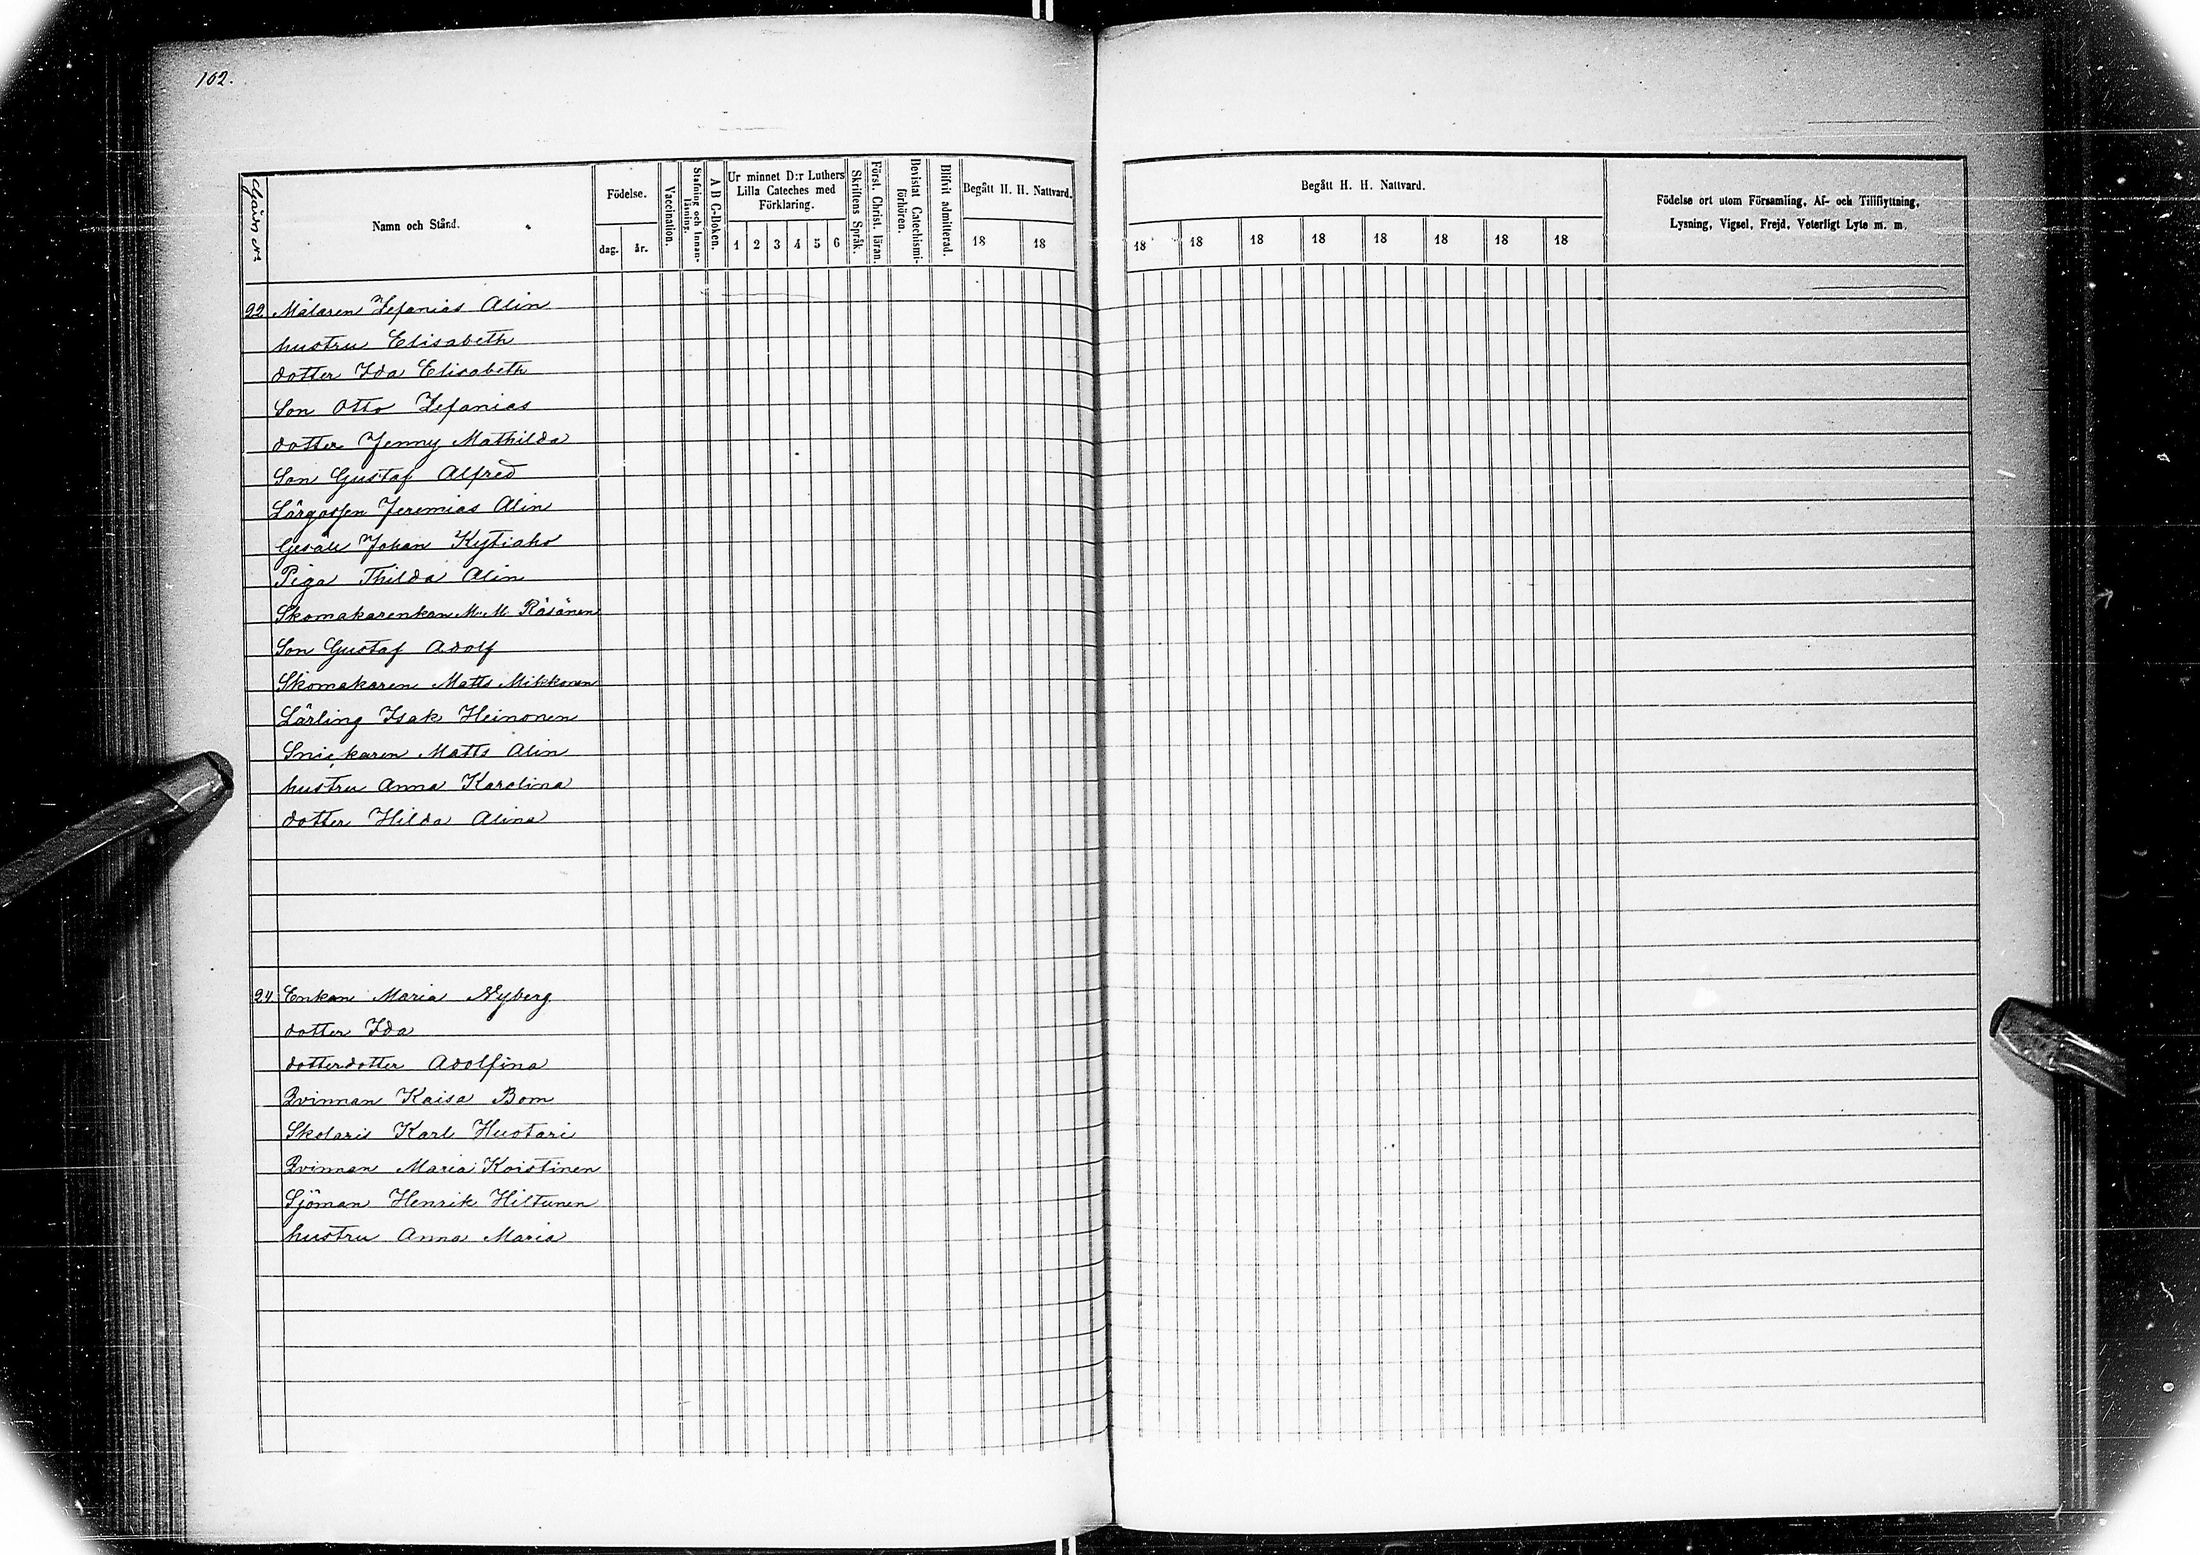 102.
Gårds No
Namn och Stånd.
Födelse.
dag.
år.
Vaccination.
Stafning och Innanläsning.
A B C-Boken.
Ur minnet D:r Luthers
Lilla Cateches med
Förklaring.
1 2 3 4 5 6
Skriftens Språk.
Först. Christ. läran.
Bevistat Catechismi-
förhören.
Blifvit admitterad.
Begått H. H. Nattvard.
18 18
Begått H. H. Nattvard.
18 18 18 18 18 18 18 18
Födelse ort utom Församling, Af- och Tillflyttning,
Lysning, Vigsel, Frejd, Veterligt Lyte m. m.
22 Målaren Zefanias Alin
hustru Elisabeth
dotter Ida Elisabeth
Son Otto Zefanias
dotter Jenny Mathilda
Son Gustaf Alfred
Lärgossen Jeremias Alin
Gesäll Johan Kytiaho
Piga Thilda Alin
Skomakarenkan M. M. Räsänen
Son Gustaf Adolf
Skomakaren Matts Mikkonen
Lärling Isak Heinonen
Snickaren Matts Alin
hustru Anna Karolina
dotter Hilda Alina
24 Enkan Maria Nyberg
dotter Ida
dotterdotter Adolfina
Qvinnan Kaisa Bom
Skolaris Karl Huotari
Qvinnan Maria Koistinen
Sjöman Henrik Hiltunen
hustru Anna Maria